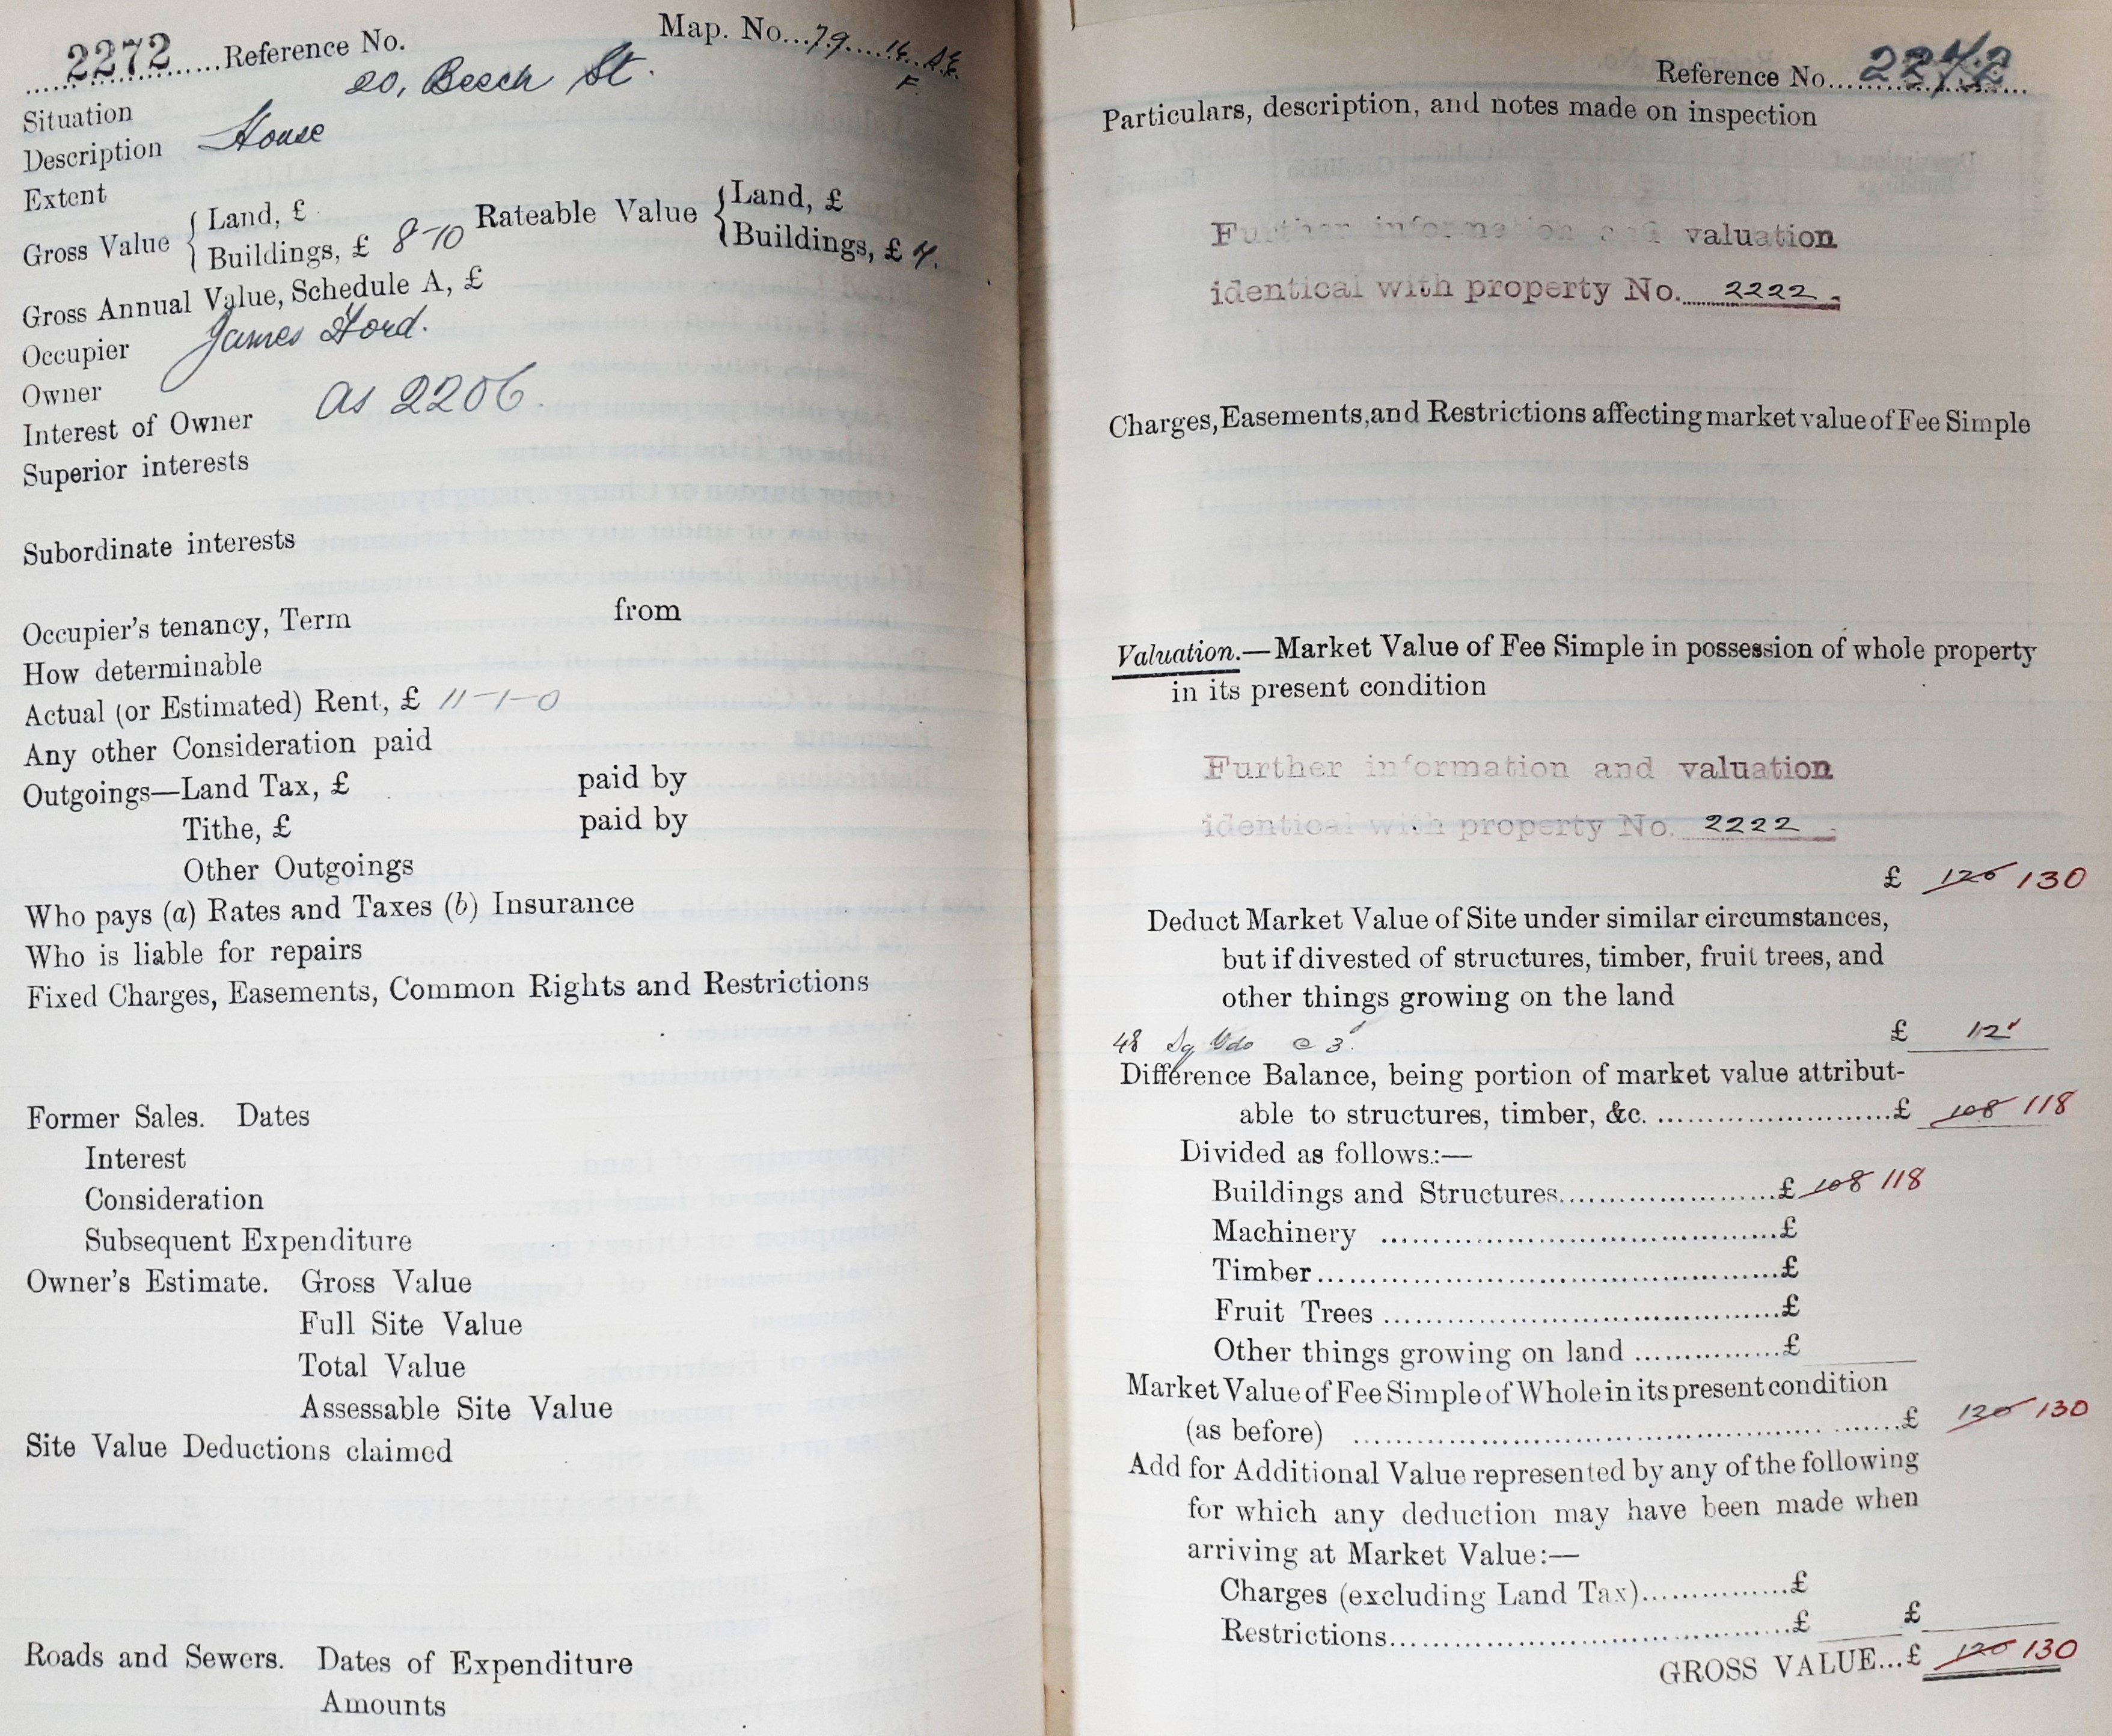 2272 Reference No. Map. No. 79. 14.
F.
Situation 20, Beech St.
Description House
Extent
Gross Value { Land, £ Rateable Value { Land, £
Buildings, £ 8-10 Buildings, £ 4.
Gross Annual Value, Schedule A, £
Occupier James Ford.
Owner
Interest of Owner as 2206.
Superior interests
Subordinate interests
Occupier's tenancy, Term from
How determinable
Actual (or Estimated) Rent, £ 11-1-0
Any other Consideration paid
Outgoings—Land Tax, £ paid by
Tithe, £ paid by
Other Outgoings
Who pays (a) Rates and Taxes (b) Insurance
Who is liable for repairs
Fixed Charges, Easements, Common Rights and Restrictions
Former Sales. Dates
Interest
Consideration
Subsequent Expenditure
Owner's Estimate. Gross Value
Full Site Value
Total Value
Assessable Site Value
Site Value Deductions claimed
Roads and Sewers. Dates of Expenditure
Amounts
Reference No. 2272
Particulars, description, and notes made on inspection
Further information and valuation
identical with property No. 2222.
Charges, Easements, and Restrictions affecting market value of Fee Simple
Valuation.—Market Value of Fee Simple in possession of whole property
in its present condition
Further information and valuation
identical with property No. 2222.
£ 120 130
Deduct Market Value of Site under similar circumstances,
but if divested of structures, timber, fruit trees, and
other things growing on the land
48 Sq Yds @ 3' £ 12
Difference Balance, being portion of market value attribut-
able to structures, timber, &c. ........................£ 108 118
Divided as follows:—
Buildings and Structures......................£ 108 118
Machinery ......................................£
Timber..........................................£
Fruit Trees .....................................£
Other things growing on land ...............£
Market Value of Fee Simple of Whole in its present condition
(as before) ......................................................£ 120 130
Add for Additional Value represented by any of the following
for which any deduction may have been made when
arriving at Market Value:—
Charges (excluding Land Tax)...............£
Restrictions.......................................£ £
GROSS VALUE...£ 120 130